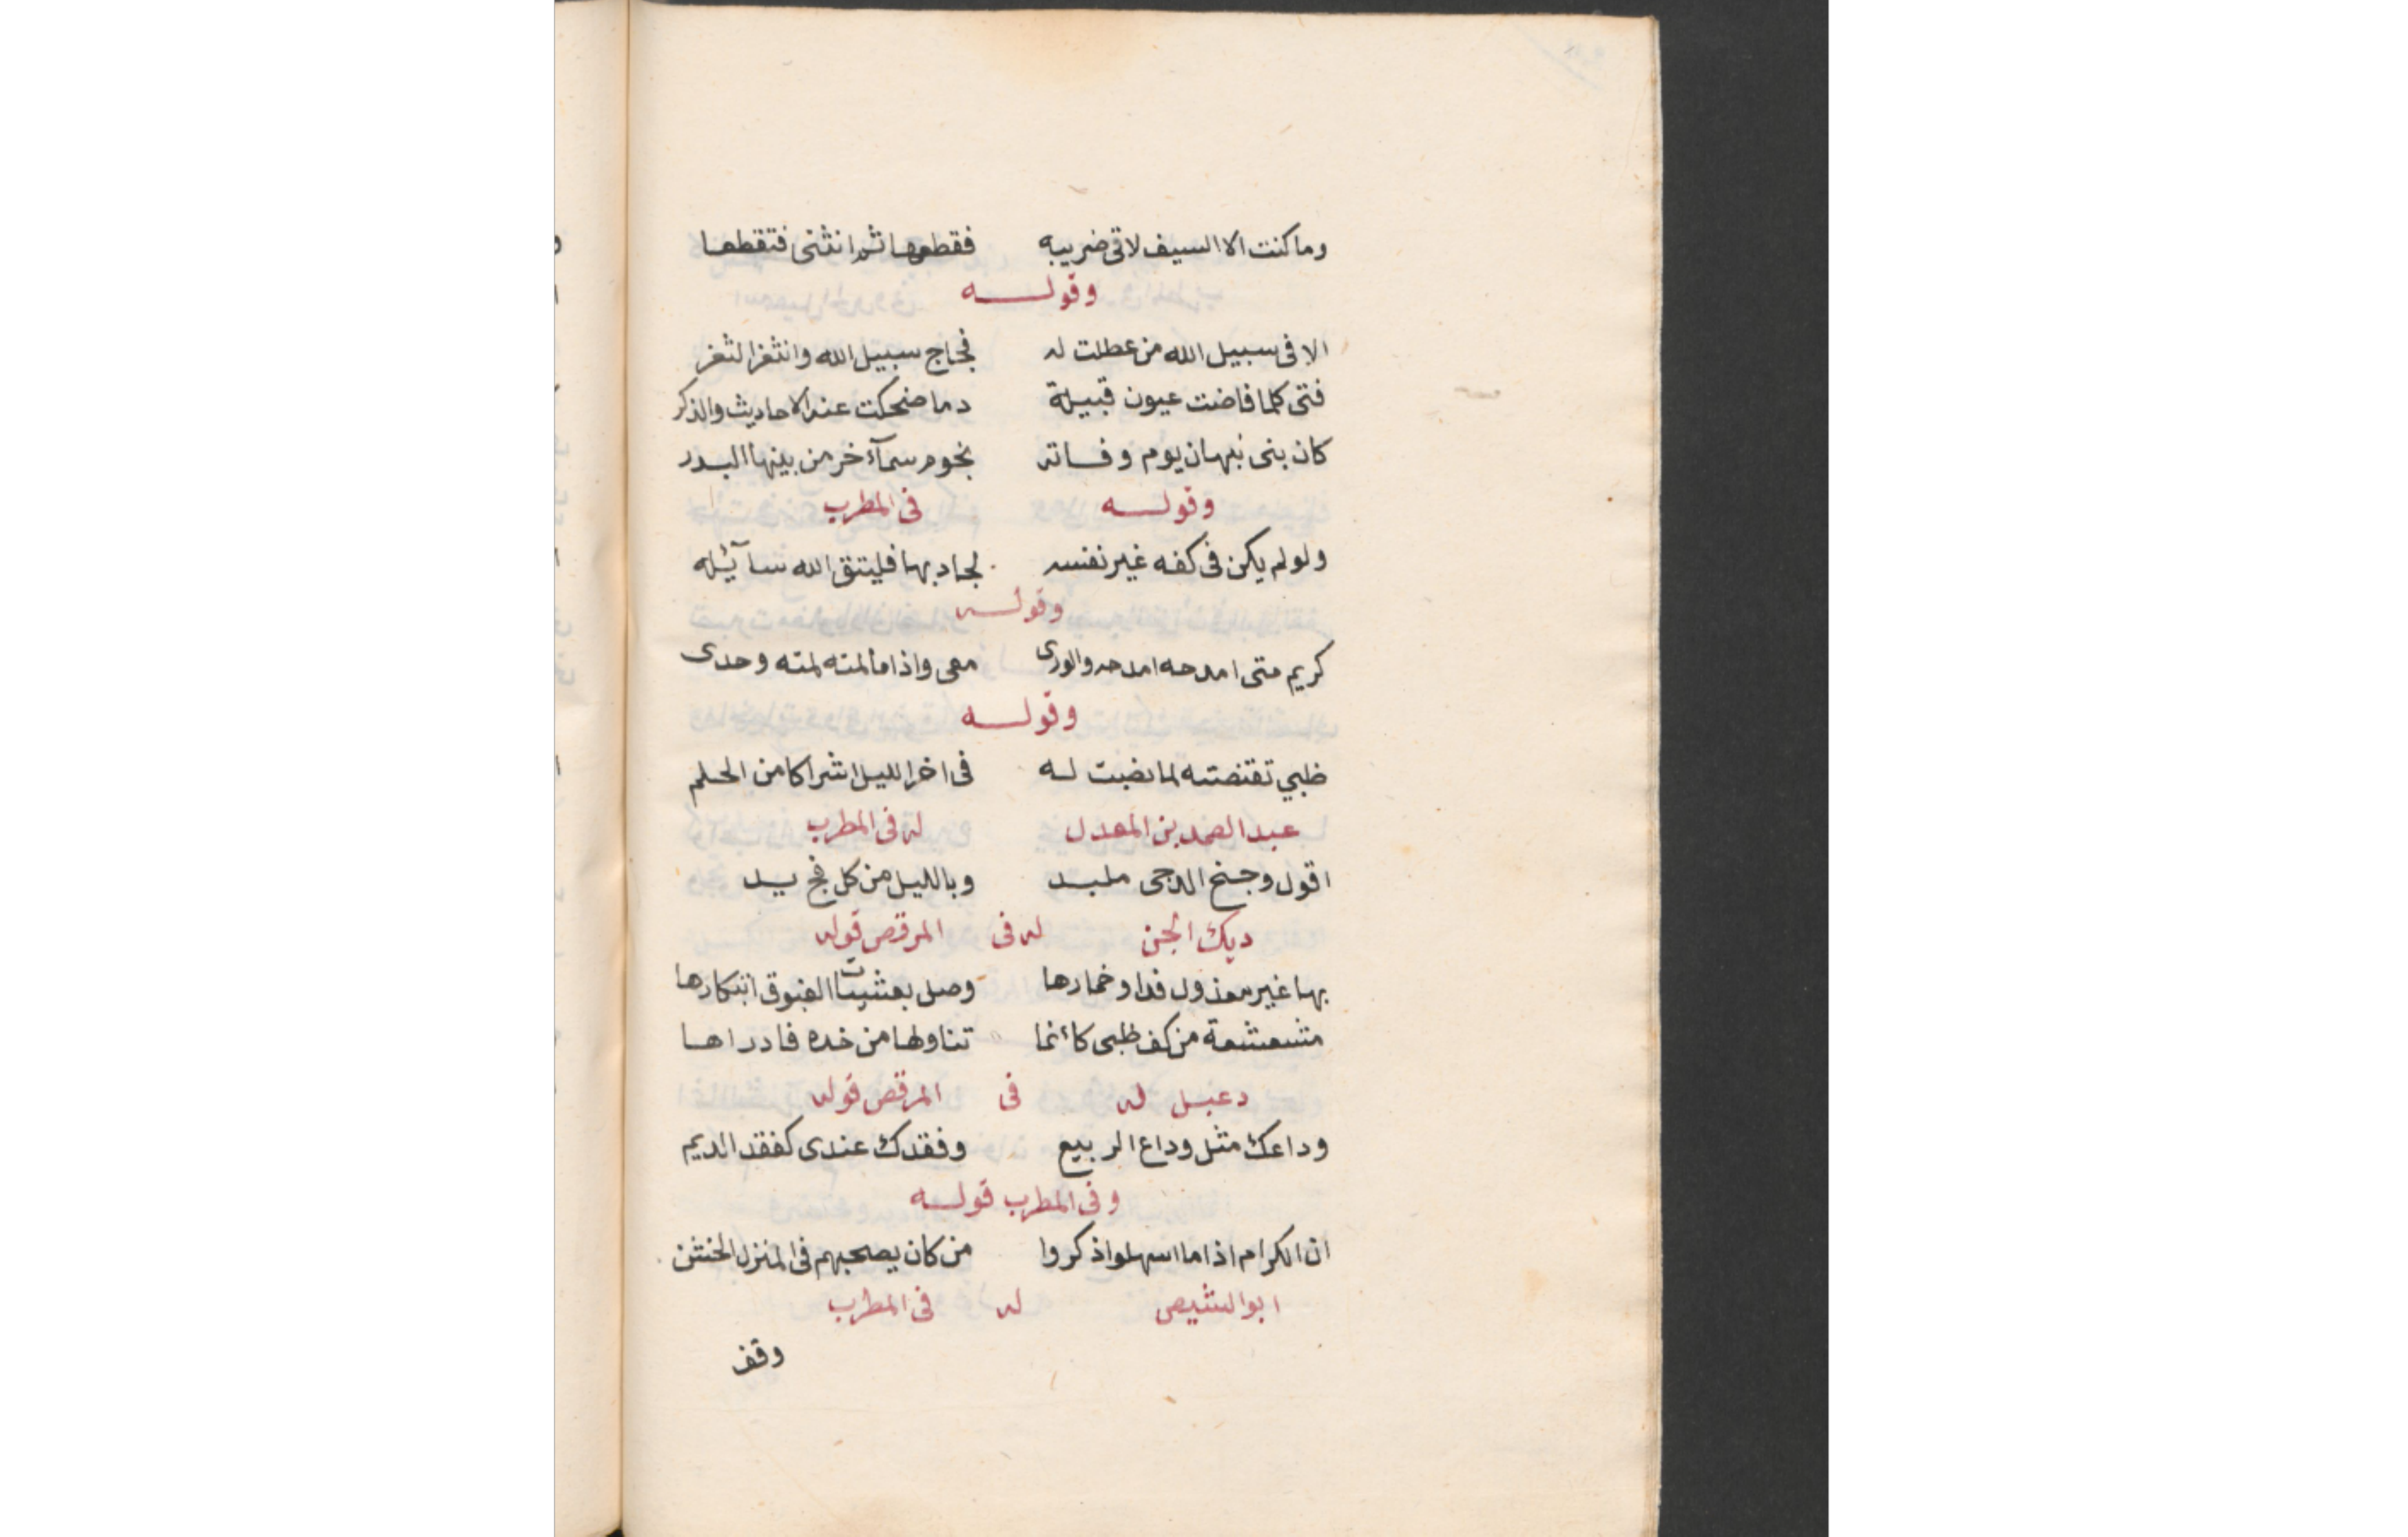 وما كنت الا السيف لاقى ضريبه فقطعها ثم انثنى فتقطعا
وقوله
الا فى سبيل الله من عطلت له فجاج سبيل الله وانثغر الثغر
فتى كلما فاضت عيون قبيلة دما ضحكت عند الاحاديث والذكر
كان بنى نبهان يوم وفاته نجوم سمآء خر من بينها البدر
وقوله فى المطرب
ولو لم يكن فى كفه غير نفسه لجاد بها فليتق الله سآئله
وقوله
كريم متى امدحه امدحه والورى معى واذا ما لمته لمته وحدى
وقوله
ظبي تقنصته لما نصبت له فى اخر الليل اشراكا من الحلم
عبد الصمد بن المعدل له فى المطرب
اقول وجنح الدجى ملبد وبالليل من كل فج يد
ديك الجن له فى المرقص قوله
بها غير معذول فداو خمارها وصل بعشيات الغبوق ابتكارها
مشعشعة من كف ظبى كأنما تناولها من خده فادراها
دعبل له فى المرقص قوله
وداعك مثل وداع الربيع وفقدك عندى كفقد الديم
وفى المطرب قوله
ان الكرام اذا ما اسهلوا ذكروا من كان يصحبهم فى المنزل الخشن
ابو الشيص له فى المطرب
وقف